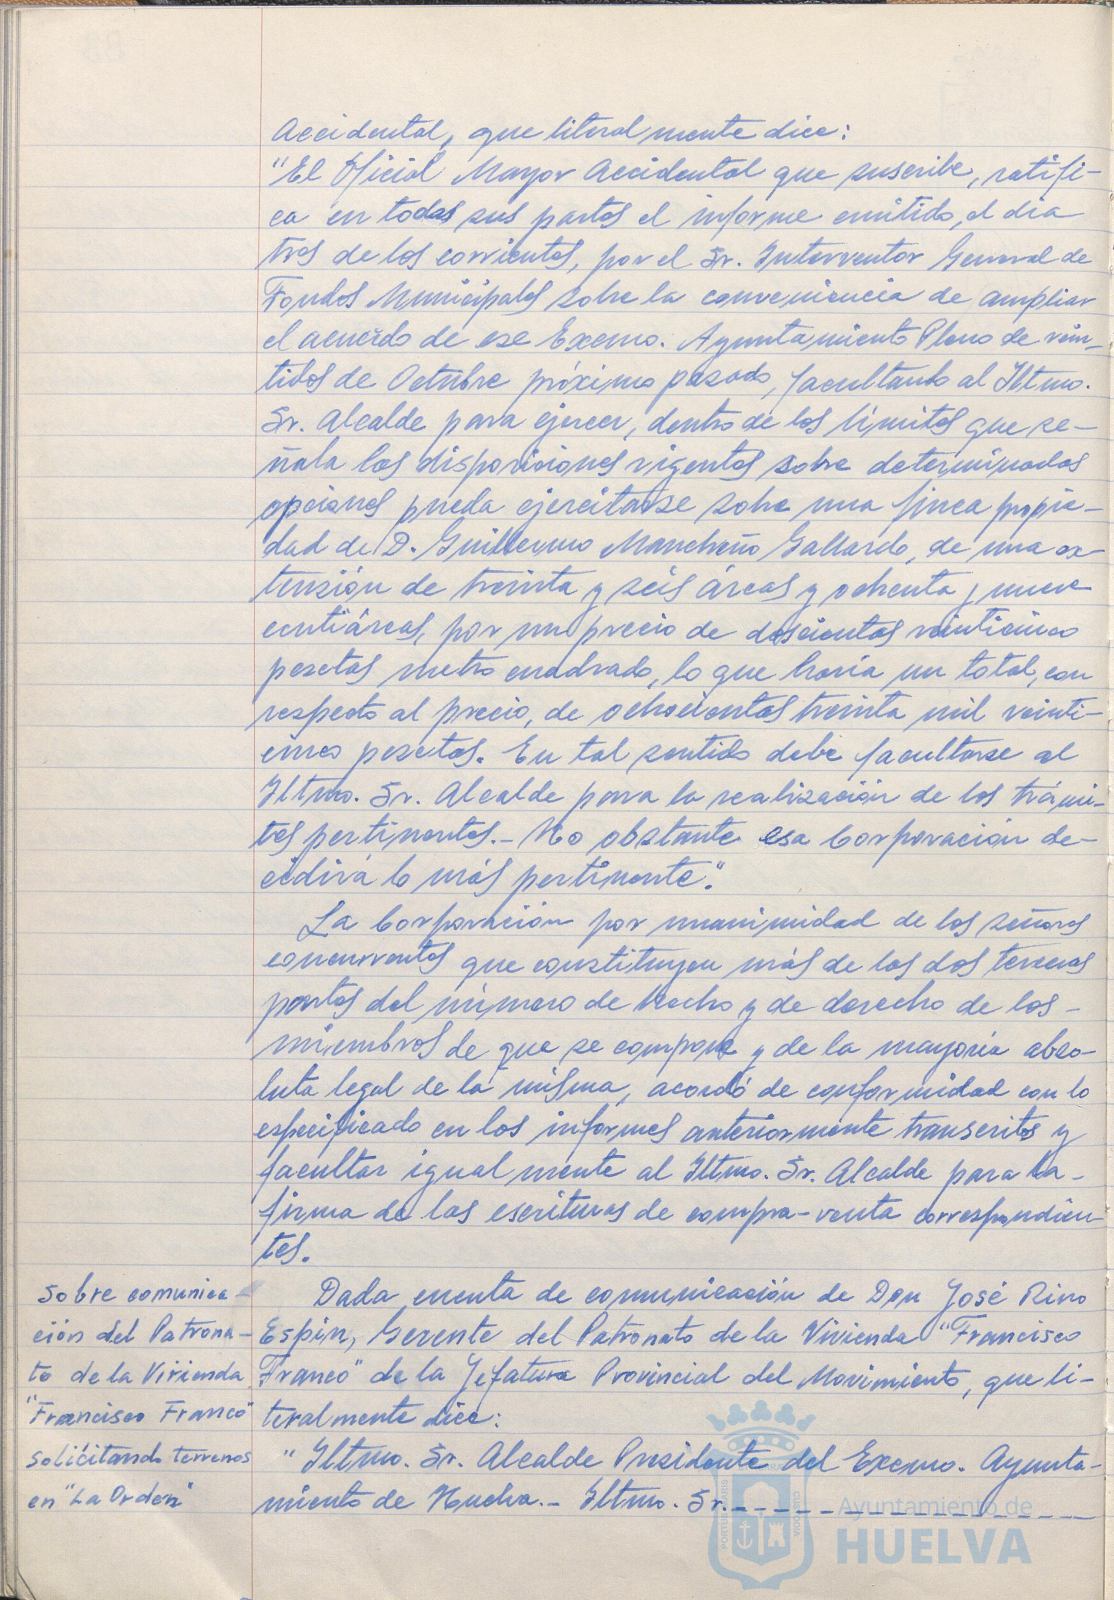 Accidental, que literalmente dice:
"El Oficial Mayor Accidental que suscribe, ratifi-
ca en todas sus partes el informe emitido, el dia
tres de los corrientes, por el Sr. Interventor General de
Fondos Municipales sobre la conveniencia de ampliar
el acuerdo de ese Excmo. Ayuntamiento Pleno de vein-
tidos de Octubre próximo pasado, facultando al Iltmo.
Sr. Alcalde para ejercer, dentro de los límites que se-
ñala las disposiciones vigentes sobre determinadas
opciones pueda ejercitarse sobre una finca propie-
dad de D. Guillermo Mancheño Gallardo, de una ex-
tensión de treinta y séis áreas y ochenta y nueve
centiáreas, por un precio de doscientas veinticinco
pesetas metro cuadrado, lo que haría un total, con
respecto al precio, de ochocientas treinta mil veinti-
cinco pesetas. En tal sentido debe facultarse al
Iltmo. Sr. Alcalde para la realización de los trámi-
tes pertinentes.- No obstante esa Corporación de-
cidirá lo más pertinente".
La Corporación por unanimidad de los señores
concurrentes que constituyen más de las dos terceras
partes del número de hecho y de derecho de los -
miembros de que se compone y de la mayoría abso-
luta legal de la misma, acordó de conformidad con lo
especificado en los informes anteriormente transcritos y
facultar igualmente al Iltmo. Sr. Alcalde para la -
firma de las escrituras de compra-venta correspondien-
tes.
Sobre comunica-
ción del Patrona-
to de la Vivienda
"Francisco Franco"
solicitando terrenos
en "La Orden"
Dada cuenta de comunicación de Don José Rino
Espín, Gerente del Patronato de la Vivienda "Francisco
Franco" de la Jefatura Provincial del Movimiento, que li-
teralmente dice:
"Iltmo. Sr. Alcalde Presidente del Excmo. Ayunta-
miento de Huelva.- Iltmo. Sr.- - - - - - - - - - - -
Ayuntamiento de
HUELVA